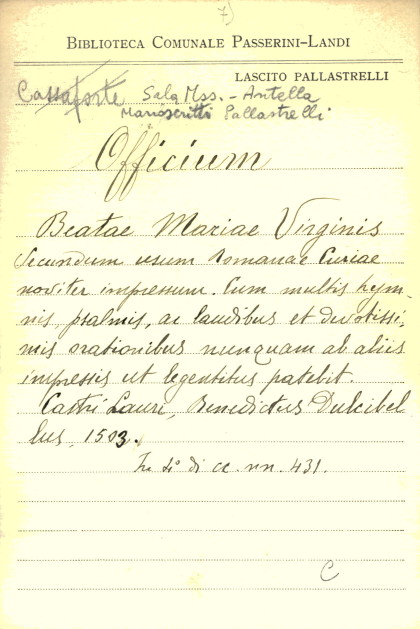 7)
BIBLIOTECA COMUNALE PASSERINI-LANDI
LASCITO PALLASTRELLI
Cassaforte Sala Mss. - Antella
Manoscritti Pallastrelli
Officium
Beatae Mariae Virginis
secundum usum Romanae Curiae
noviter impressum. Cum multis hym-
nis, psalmis, ac laudibus et devotissi-
mis orationibus nunquam ab aliis
impressis ut legentibus patebit.
Castri Lauri, Benedictus Dulcibel
lus, 1503.
In 4° di cc. nn. 431.
C